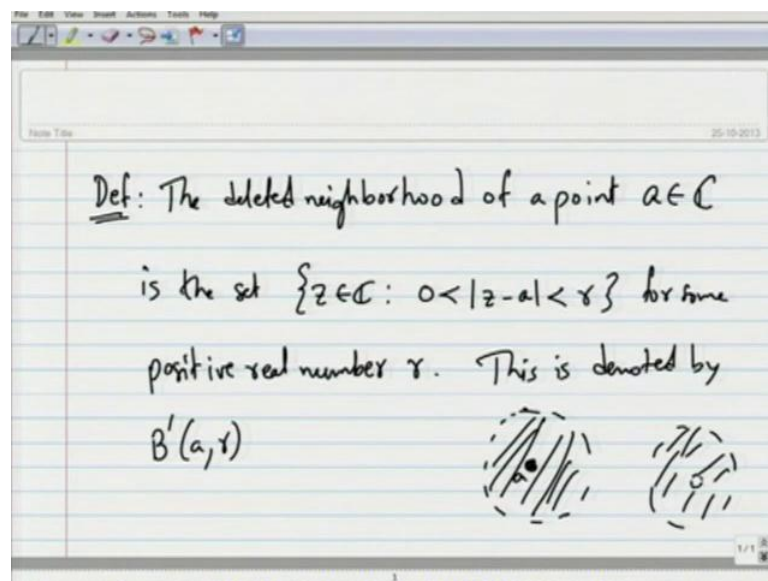 File Edit View Insert Actions Tools Help
Note Title 25-10-2013
Def: The deleted neighborhood of a point a ∈ ℂ
is the set {z ∈ ℂ : 0 < |z-a| < r} for some
positive real number r. This is denoted by
B'(a,r)
a
1/1
1